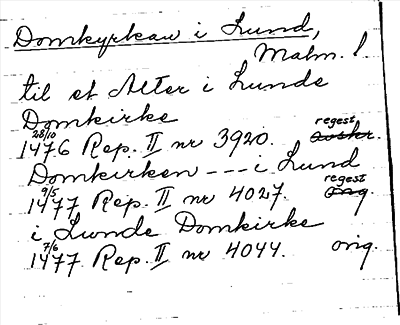 Domkyrkan i Lund,
Malm. l.
til et Alter i Lunde
Domkirke
28/10 regest
1476 Rep. II nr 3920. avskr.
Domkirken --- i Lund
9/5 regest
1477 Rep. II nr 4027. orig
i Lunde Domkirke
7/6
1477 Rep. II nr 4044. orig.